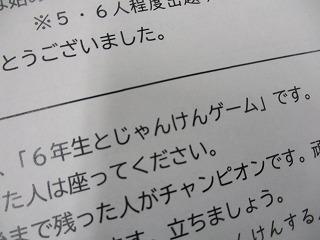 ※５・６人程度出題
とうございました。
、「６年生とじゃんけんゲーム」です。
た人は座ってください。
まで残った人がチャンピオンです。
立ちましょう。
けんする